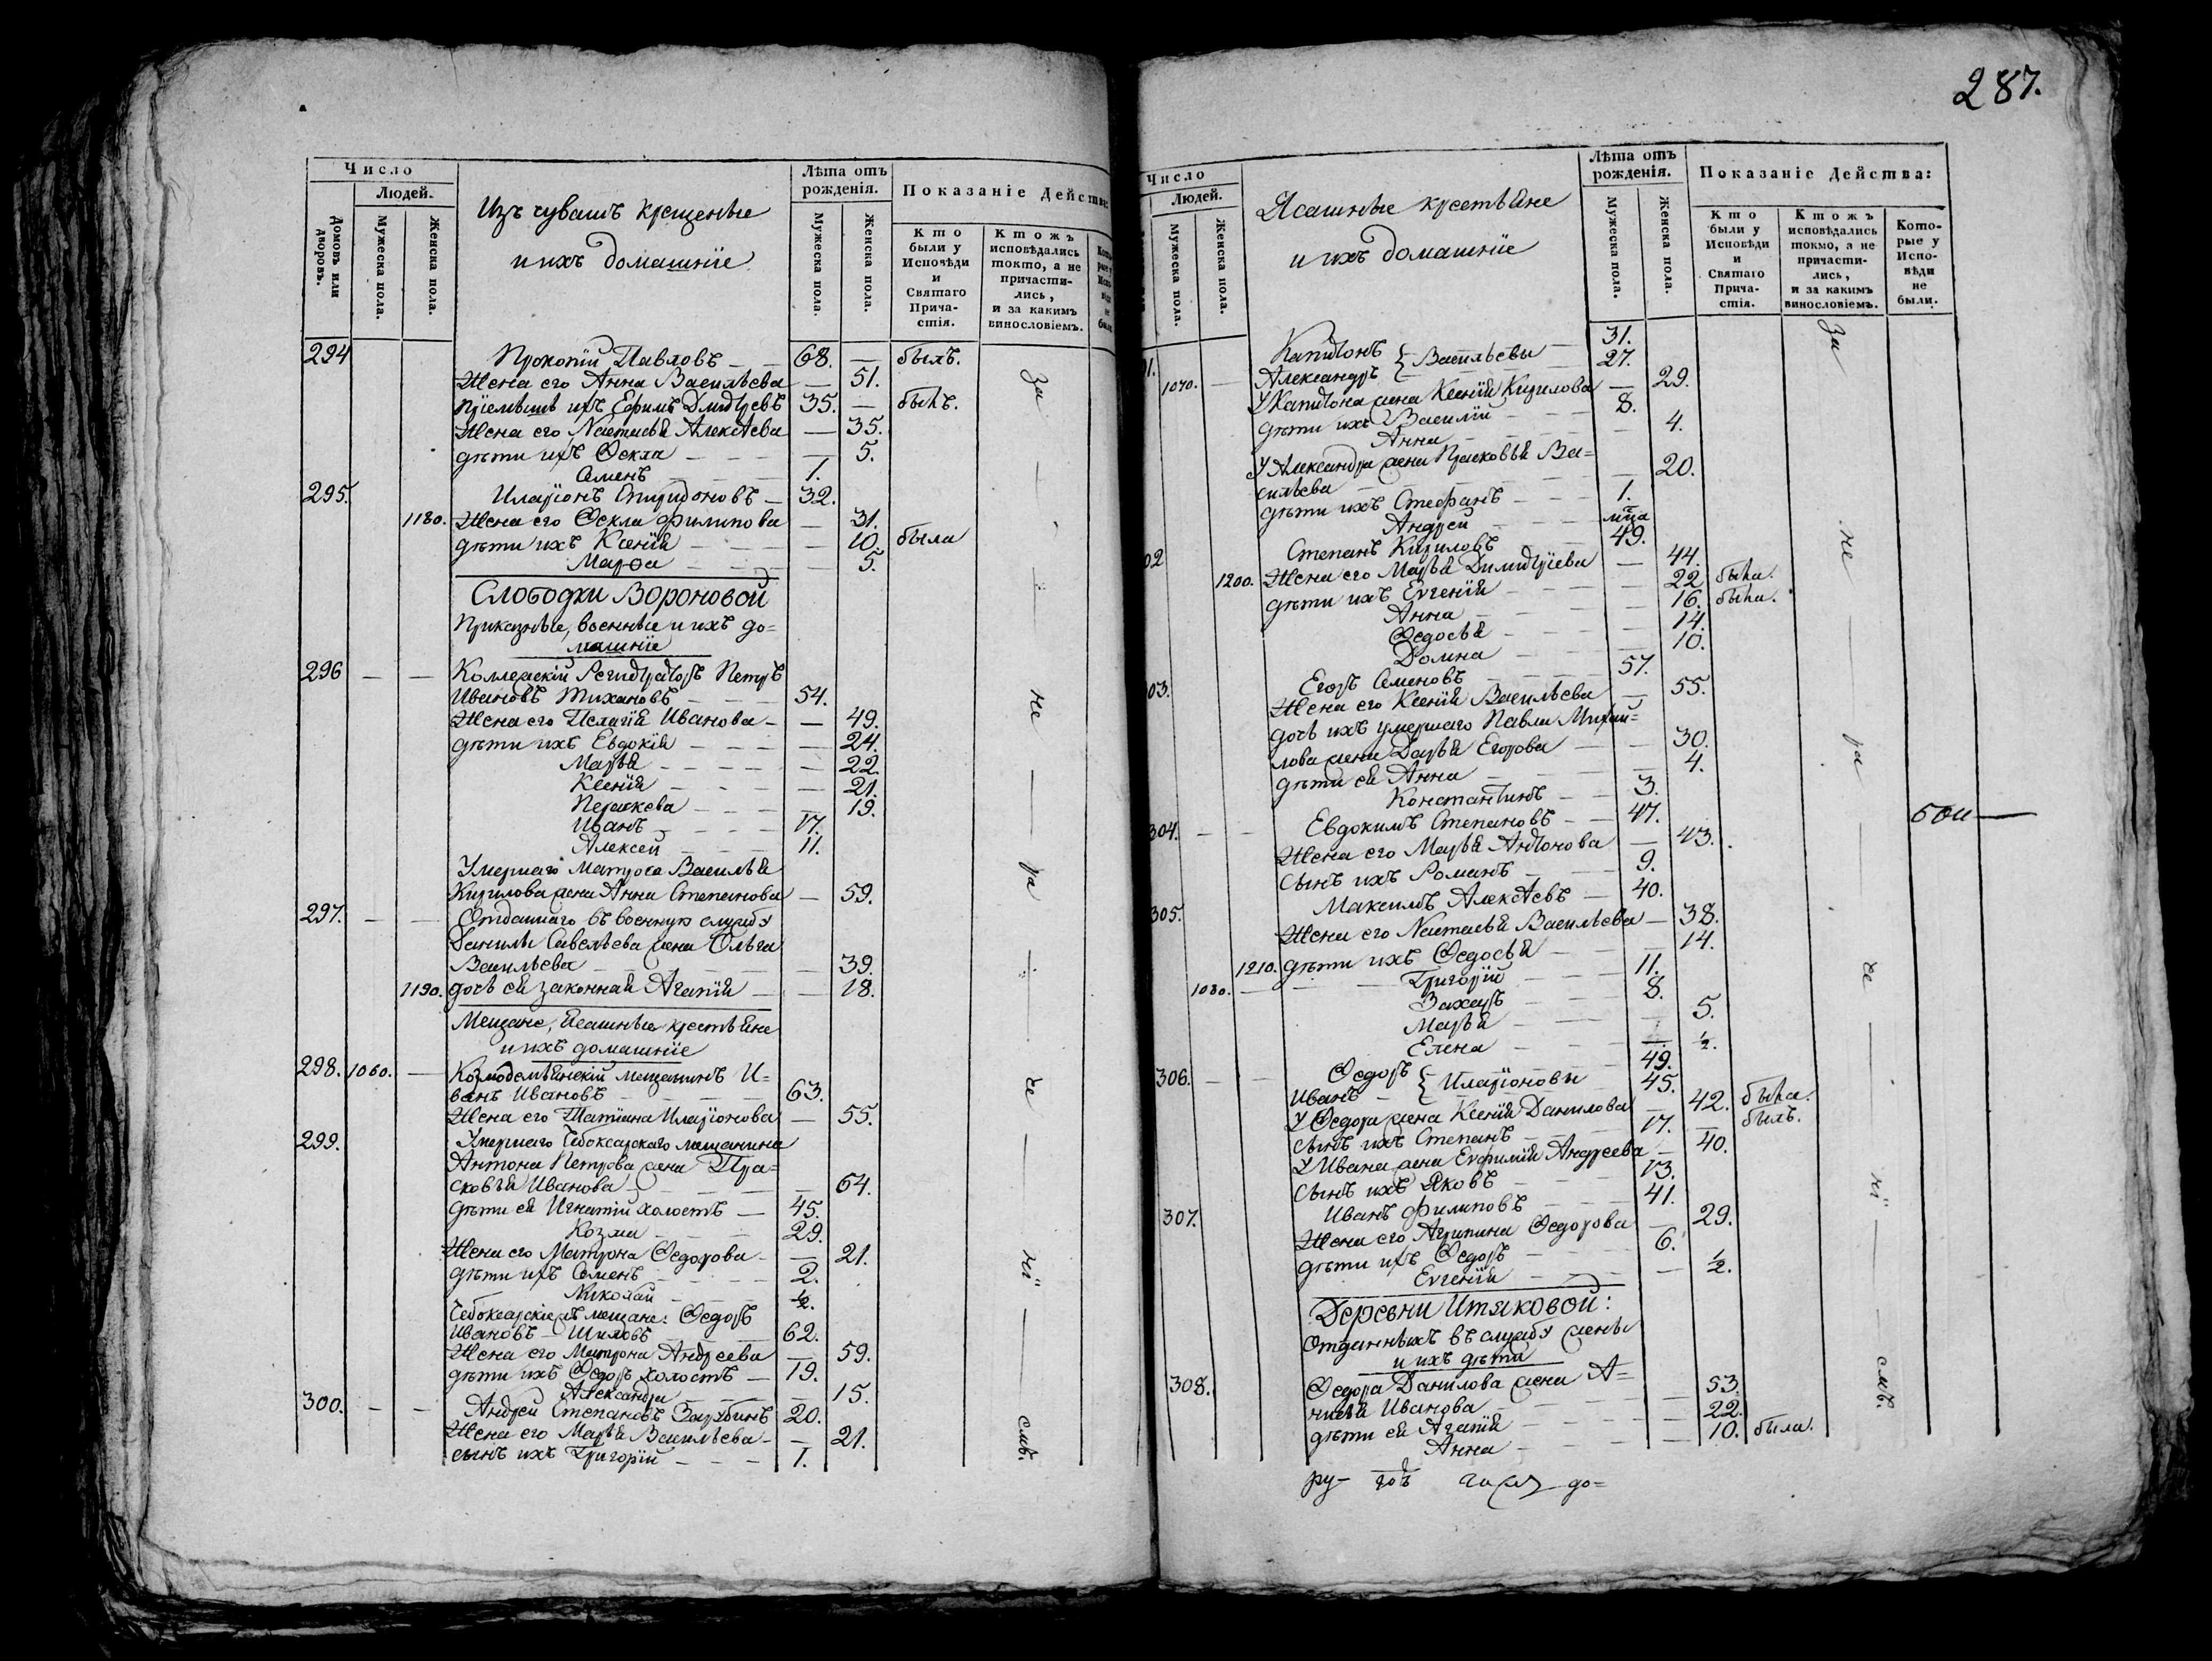 287.
Число
Людей.
Домовъ или дворовъ.
Мужеска пола.
Женска пола.
Изъ чувашъ крещеные
и ихъ домашнїе
Лѣта отъ рожденія.
Мужеска пола.
Женска пола.
Показаніе Действа:
Кто были у Исповѣди и Святаго Прича-стія.
Ктожъ исповѣдались токмо, а не причасти-лись, и за какимъ винословіемъ.
294 Прокопїй Павловъ — 68. — былъ.
Жена его Анна Васильева — 51.
Прїемышъ ихъ Ефимъ Дмитрїевъ 35. — былъ.
Жена его Настасья Алексѣева — 35.
дѣти ихъ Ѳекла — 5.
Семенъ 1.
295. Иларїонъ Спиридоновъ — 32.
1180. Жена его Ѳекла Филипова — 31.
дѣти ихъ Ксенїя — 10. была
Марѳа — 5.
Слободки Вороновой
Приказные, военные и ихъ до=
машнїе
296 — — Коллежскїй Регистраторъ Петръ
Ивановъ Тихановъ — 54.
Жена его Пелагїя Иванова — 49.
дѣти ихъ Евдокїя — 24.
Марья — 22.
Ксенїя — 21.
Пераскева — 19.
Иванъ — 17.
Алексей 11.
Умершаго матроса Василья
Кирилова жена Анна Степанова — 59.
297. — — Отдашаго въ военную службу
Данилы Савельева жена Ольга
Васильева — 39.
1190. дочь ея законная Агапїя — 18.
Мещане, Ясашные крестьяне
и ихъ домашнїе
298. 1060. — Козмодемьянскїй мещанинъ И=
ванъ Ивановъ — 63.
Жена его Татїана Иларїонова — 55.
299. Умершаго Чебоксарскаго мещанина
Антона Петрова жена Пра=
сковья Иванова — 64.
дѣти ея Игнатїй холостъ — 45.
Козма — 29.
Жена его Матрона Ѳедорова — 21.
дѣти ихъ Семенъ — 2.
Николай ½.
Чебоксарскїе мещане: Ѳедоръ
Ивановъ Шиловъ 62.
Жена его Матрона Андреева — 59.
дѣти ихъ Ѳедоръ холостъ — 19.
Александра — 15.
300. — — Андрей Степановъ Зарубинъ 20.
Жена его Марья Васильева — 21.
сынъ ихъ Григорїй — 1.
за
не
ра
че
нї
емъ.
Число
Людей.
Мужеска пола.
Женска пола.
Ясашные крестьяне
и ихъ домашнїе
Лѣта отъ рожденія.
Мужеска пола.
Женска пола.
Показаніе Действа:
Кто были у Исповѣди и Святаго Прича-стія.
Ктожъ исповѣдались токмо, а не причасти-лись, и за какимъ винословіемъ.
Кото-рые у Испо-вѣди не были.
Капитонъ } Васильевы — 31.
1070. — Александръ 27.
У Капитона жена Ксенїя Кирилова — 29.
дѣти ихъ Василїй 8.
Анна — 4.
У Александра жена Прасковья Ва=
сильева — 20.
дѣти ихъ Стефанъ — 1.
Андрей
02 Степанъ Кириловъ 49.
1200. Жена его Марья Димитрїева — 44.
дѣти ихъ Евгенїя — 22 была.
Анна — 16. была.
Ѳедосья — 14.
Домна — 10.
03. Егоръ Семеновъ — 57.
Жена его Ксенїя Васильева — 55.
дочь ихъ умершаго Павла Михай=
лова жена Дарья Егорова — 30.
дѣти ея Анна — 4.
Константинъ — 3.
304. — — Евдокимъ Степановъ — 47.
Жена его Марья Антонова — 43.
сынъ ихъ Романъ — 9.
305. Максимъ Алексѣевъ — 40.
Жена его Настасья Васильева — 38.
1210. дѣти ихъ Ѳедосья — 14.
1080. — Григорїй — 11.
Захаръ — 8.
Марья — 5.
Елена — ½.
306. — — Ѳедоръ } Иларїоновы 49.
Иванъ 45.
У Ѳедора жена Ксенїя Данилова — 42. была.
сынъ ихъ Степанъ — 17. — былъ.
У Ивана жена Евфимїя Андреева — 40.
сынъ ихъ Яковъ — 13.
307. Иванъ Филиповъ — 41.
Жена его Агрипина Ѳедорова — 29.
дѣти ихъ Ѳедоръ — 6.
Евгенїя — ½.
Деревни Итяковой:
Отданныхъ въ службу жены
и ихъ дѣти
308. Ѳедора Данилова жена А=
нисья Иванова — 53.
дѣти ея Агапїя — 22.
Анна — 10. была.
за
не
ра
че
нї
емъ.